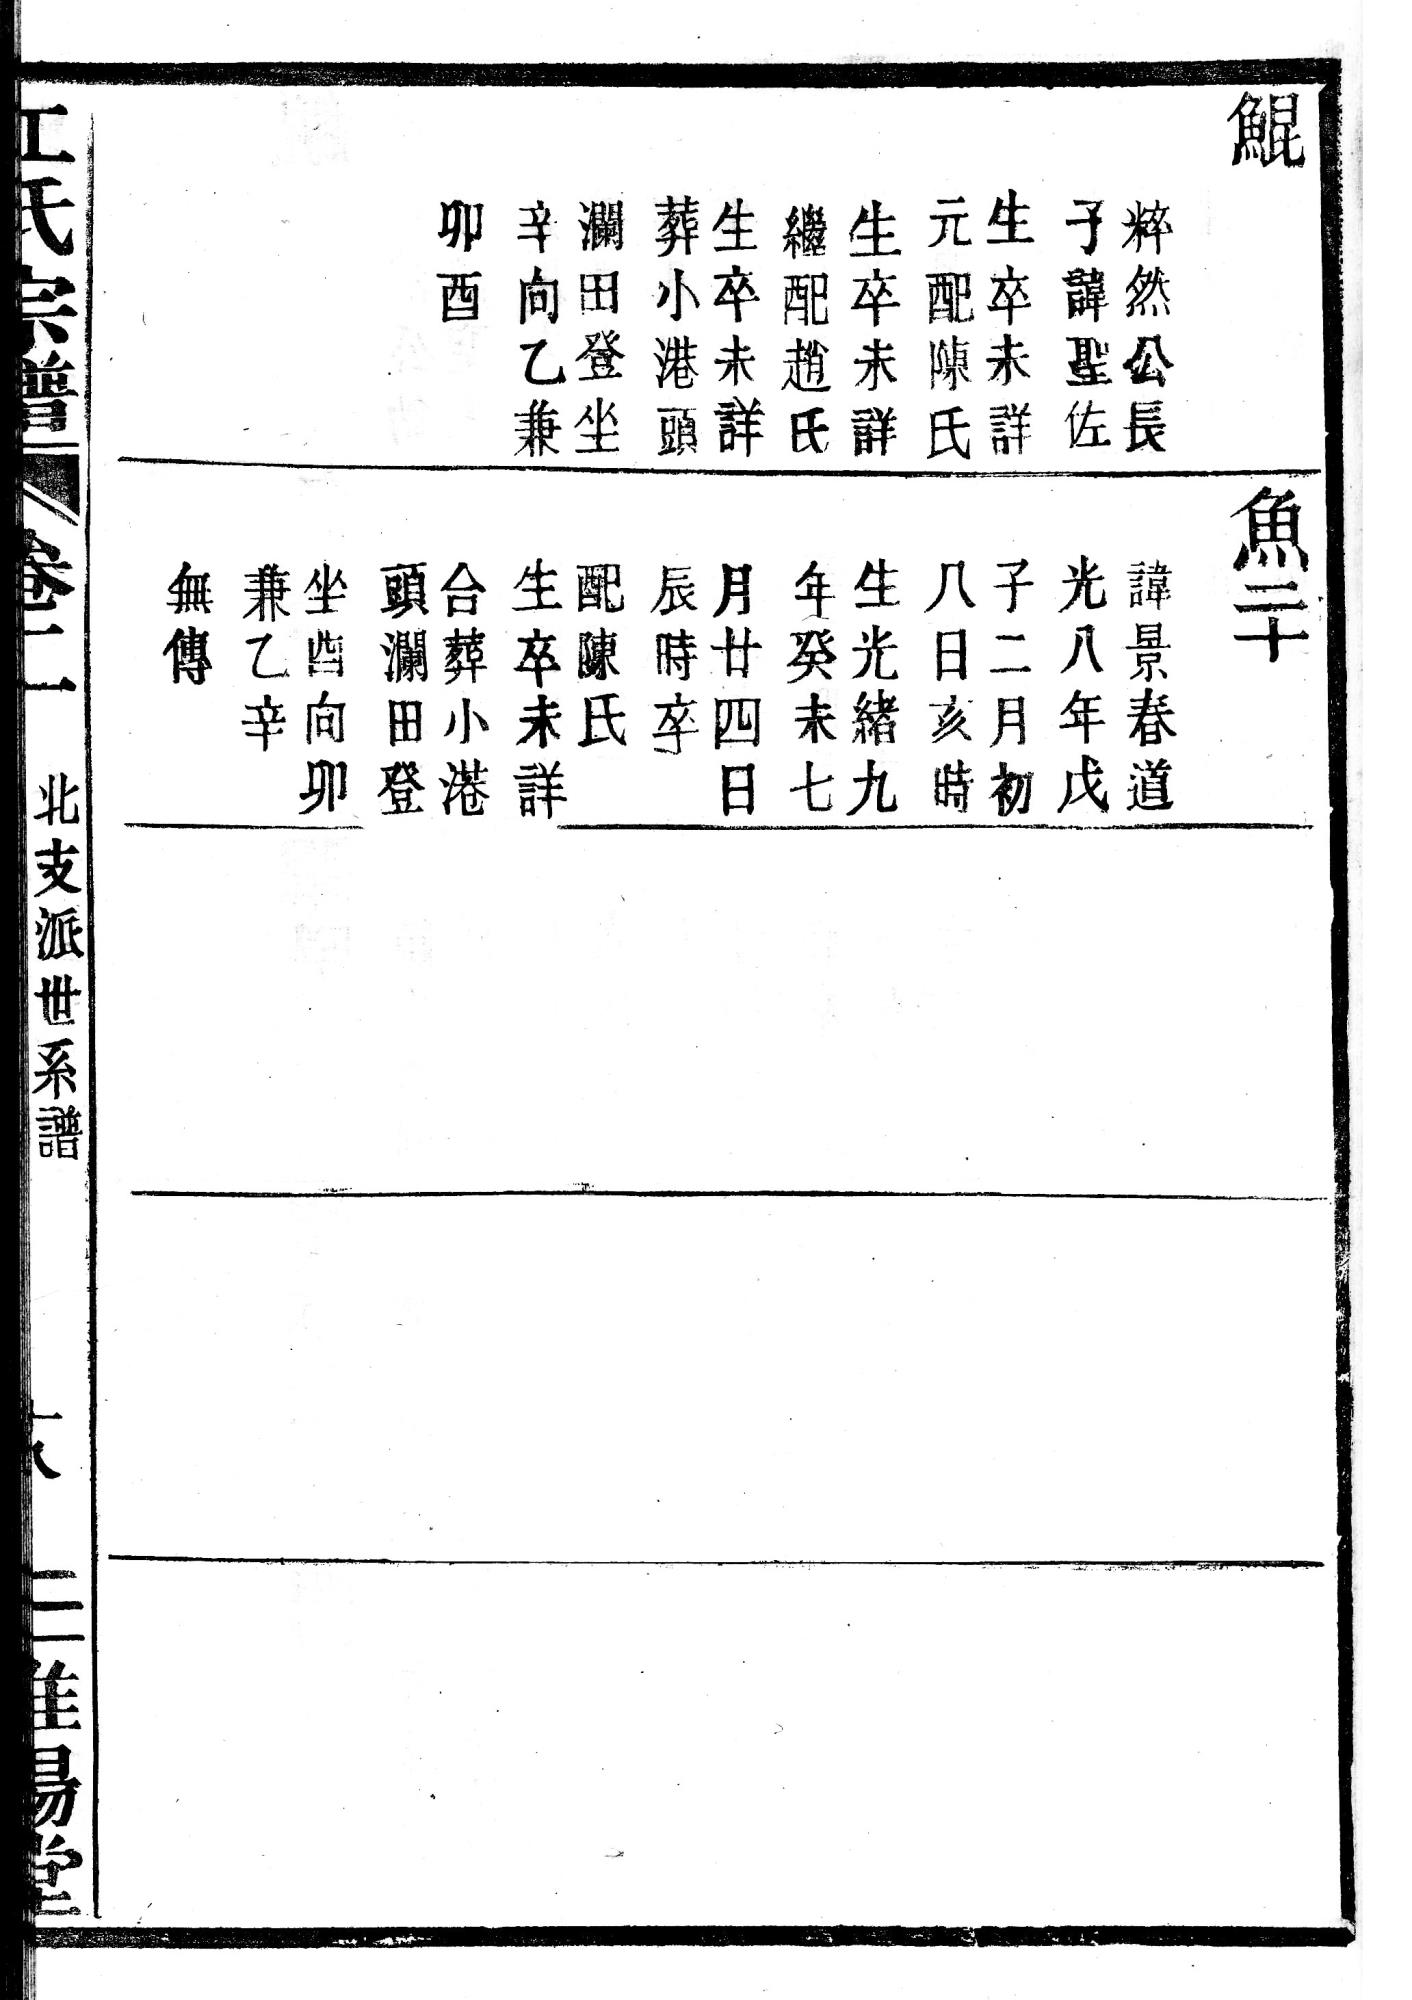 鯤
粹然公長
子諱聖佐
生卒未詳
元配陳氏
生卒未詳
繼配趙氏
生卒未詳
葬小港頭
瀾田登坐
辛向乙兼
卯酉
魚二十
諱景春道
光八年戊
子二月初
八日亥時
生光緒九
年癸未七
月廿四日
辰時卒
配陳氏
生卒未詳
合葬小港
頭瀾田登
坐酉向卯
兼乙辛
無傳
江氏宗譜
卷二
北支派世系譜
十八
淮陽堂